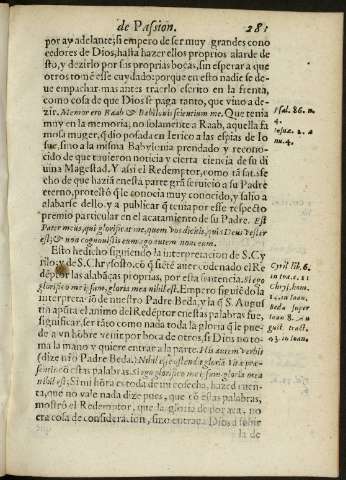 de Passion. 281
por ay adelante; si empero de ser muy grandes cono
cedores de Dios, hasta hazer ellos proprios alarde de
sto, y dezirlo por sus proprias bocas, sin esperar a que
otros tomē esse cuydado: porque en esto nadie se de-
ue empachar, mas antes traerlo escrito en la frenta,
como cosa de que Dios se paga tanto, que vino a de-
zir. Memor ero Raab & Babilonis scientium me. Que tenia
muy en la memoria, no solamente a Raab, aquella fa
mosa muger, q̄ dio posada en Ierico a las espias de Io
sue, sino a la misma Babylonia prendado y recono-
cido de que tauieron noticia y cierta ciencia de su di
uina Magestad. Y assi el Redemptor, como tā satisfe
cho de que hazia en esta parte grā seruicio a su Padre
eterno, protestò q̄ le conocia muy conocido, y salio a
alabarse dello, y a publicar q̄ tenia por esse respecto
premio particular en el acatamiento de su Padre. Est
Pater meus, qui glorificat me, quem vos dicitis, quis Deus vester
est; & non cognouistis eum, ego autem noui eum.
Esto hedicho siguiendo la interpretacion de S. Cy
rilo, y de S. Chrysosto. cō q̄
ptor las alabāças proprias, por esta sentencia. Si ego
glorifico me ipsam, gloria mea nihil est. Empero siguiēdo la
interpretaciō de nuestro Padre Beda, y la q̄ S. Augus
tin apūta el animo del Redēptor en estas palabras fue,
significar, ser tāto como nada toda la gloria q̄ le pue-
de a vn hōbre venir por boca de otros, si Dios no to-
ma la mano y quiere entrar a la parte. His autem verbis
(dize nr̄o Padre Beda.) Nihil esse ostendit gloriā vitæ præ-
sentis cō estas palabras. Si ego glorifico me ipsam, gloria mea
nihil est, Si mi hōra es toda de mi cosecha, hazed cuen-
ta, que no vale nada dize pues, que cō estas palabras,
mostrò el Redemptor, que la gloria de por aca, no
era cosa de consideraciōn, sino entraua Dios a subir
la de
Psal. 86. n.
4.
Iosuæ. 2. a
nu. 4.
Cyril lib. 6.
in Ioa. c. 11
Chrys. hom.
in Ioan.
Beda super
Ioan 8. Au
gust. tract.
43. in Ioan.